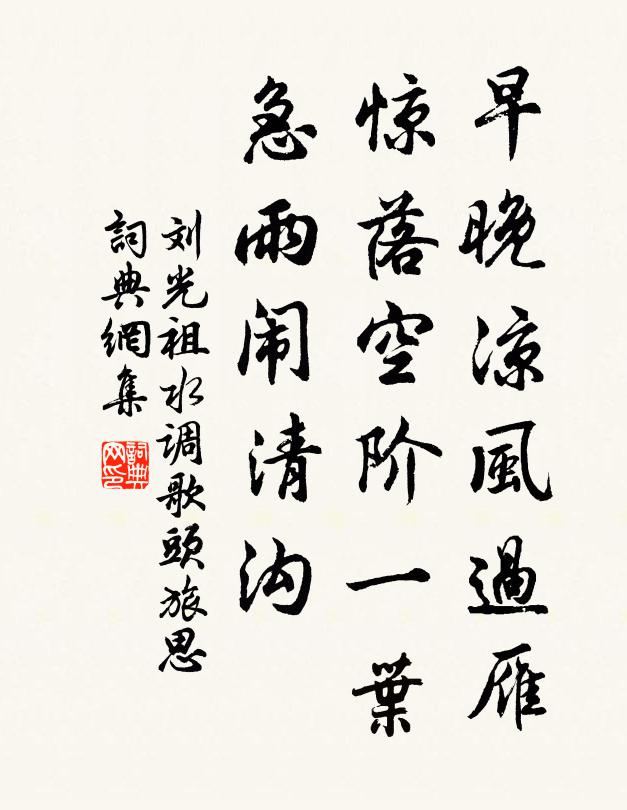 早晚凉風過雁
惊落空阶一葉
急雨闹清沟
刘光祖水调歌頭旅思
詞典網集
詞典
网印